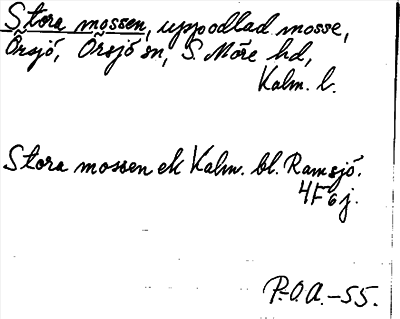 Stora mossen, uppodlad mosse,
Örsjö, Örsjö sn, S. Möre hd,
Kalm. l.
Stora mossen ek Kalm. bl. Ramsjö.
4F 6j.
P.-O.A.-55.